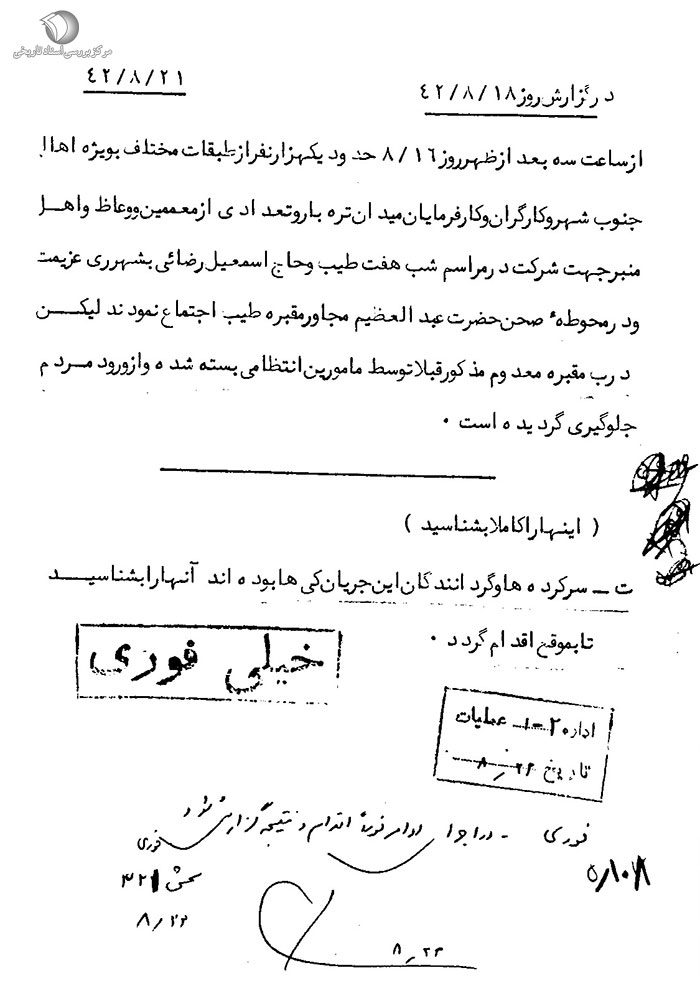 مرکز بررسی اسناد تاریخی
در گزارش روز ۴۲/۸/۱۸
۴۲/۸/۲۱
از ساعت سه بعد از ظهر روز ۸/۱۶ حدود یکهزار نفر از طبقات مختلف بویژه اهال
جنوب شهر و کارگران و کارفرمایان میدان تره بار و تعدادی از معممین و وعاظ و اهل
منبر جهت شرکت در مراسم شب هفت طیب و حاج اسمعیل رضائی بشهر ری عزیمت
و در محوطهٔ صحن حضرت عبدالعظیم مجاور مقبره طیب اجتماع نمودند لیکن
درب مقبره معدوم مذکور قبلا توسط مامورین انتظامی بسته شده و از ورود مردم
جلوگیری گردیده است ۰
( اینها را کاملا بشناسید )
ت ـ سرکرده ها و گردانندگان این جریان کی ها بوده اند آنها را بشناسید
تا بموقع اقدام گردد ۰
خیلی فوری
اداره ۲۰-۱ عملیات
تاریخ ۸٫۲۲
فوری - در اجرا اوامر فوراً اقدام و نتیجه گزارش شود
فوری
بخش ۳۲۱
۸/۲۲
۸٫۲۳